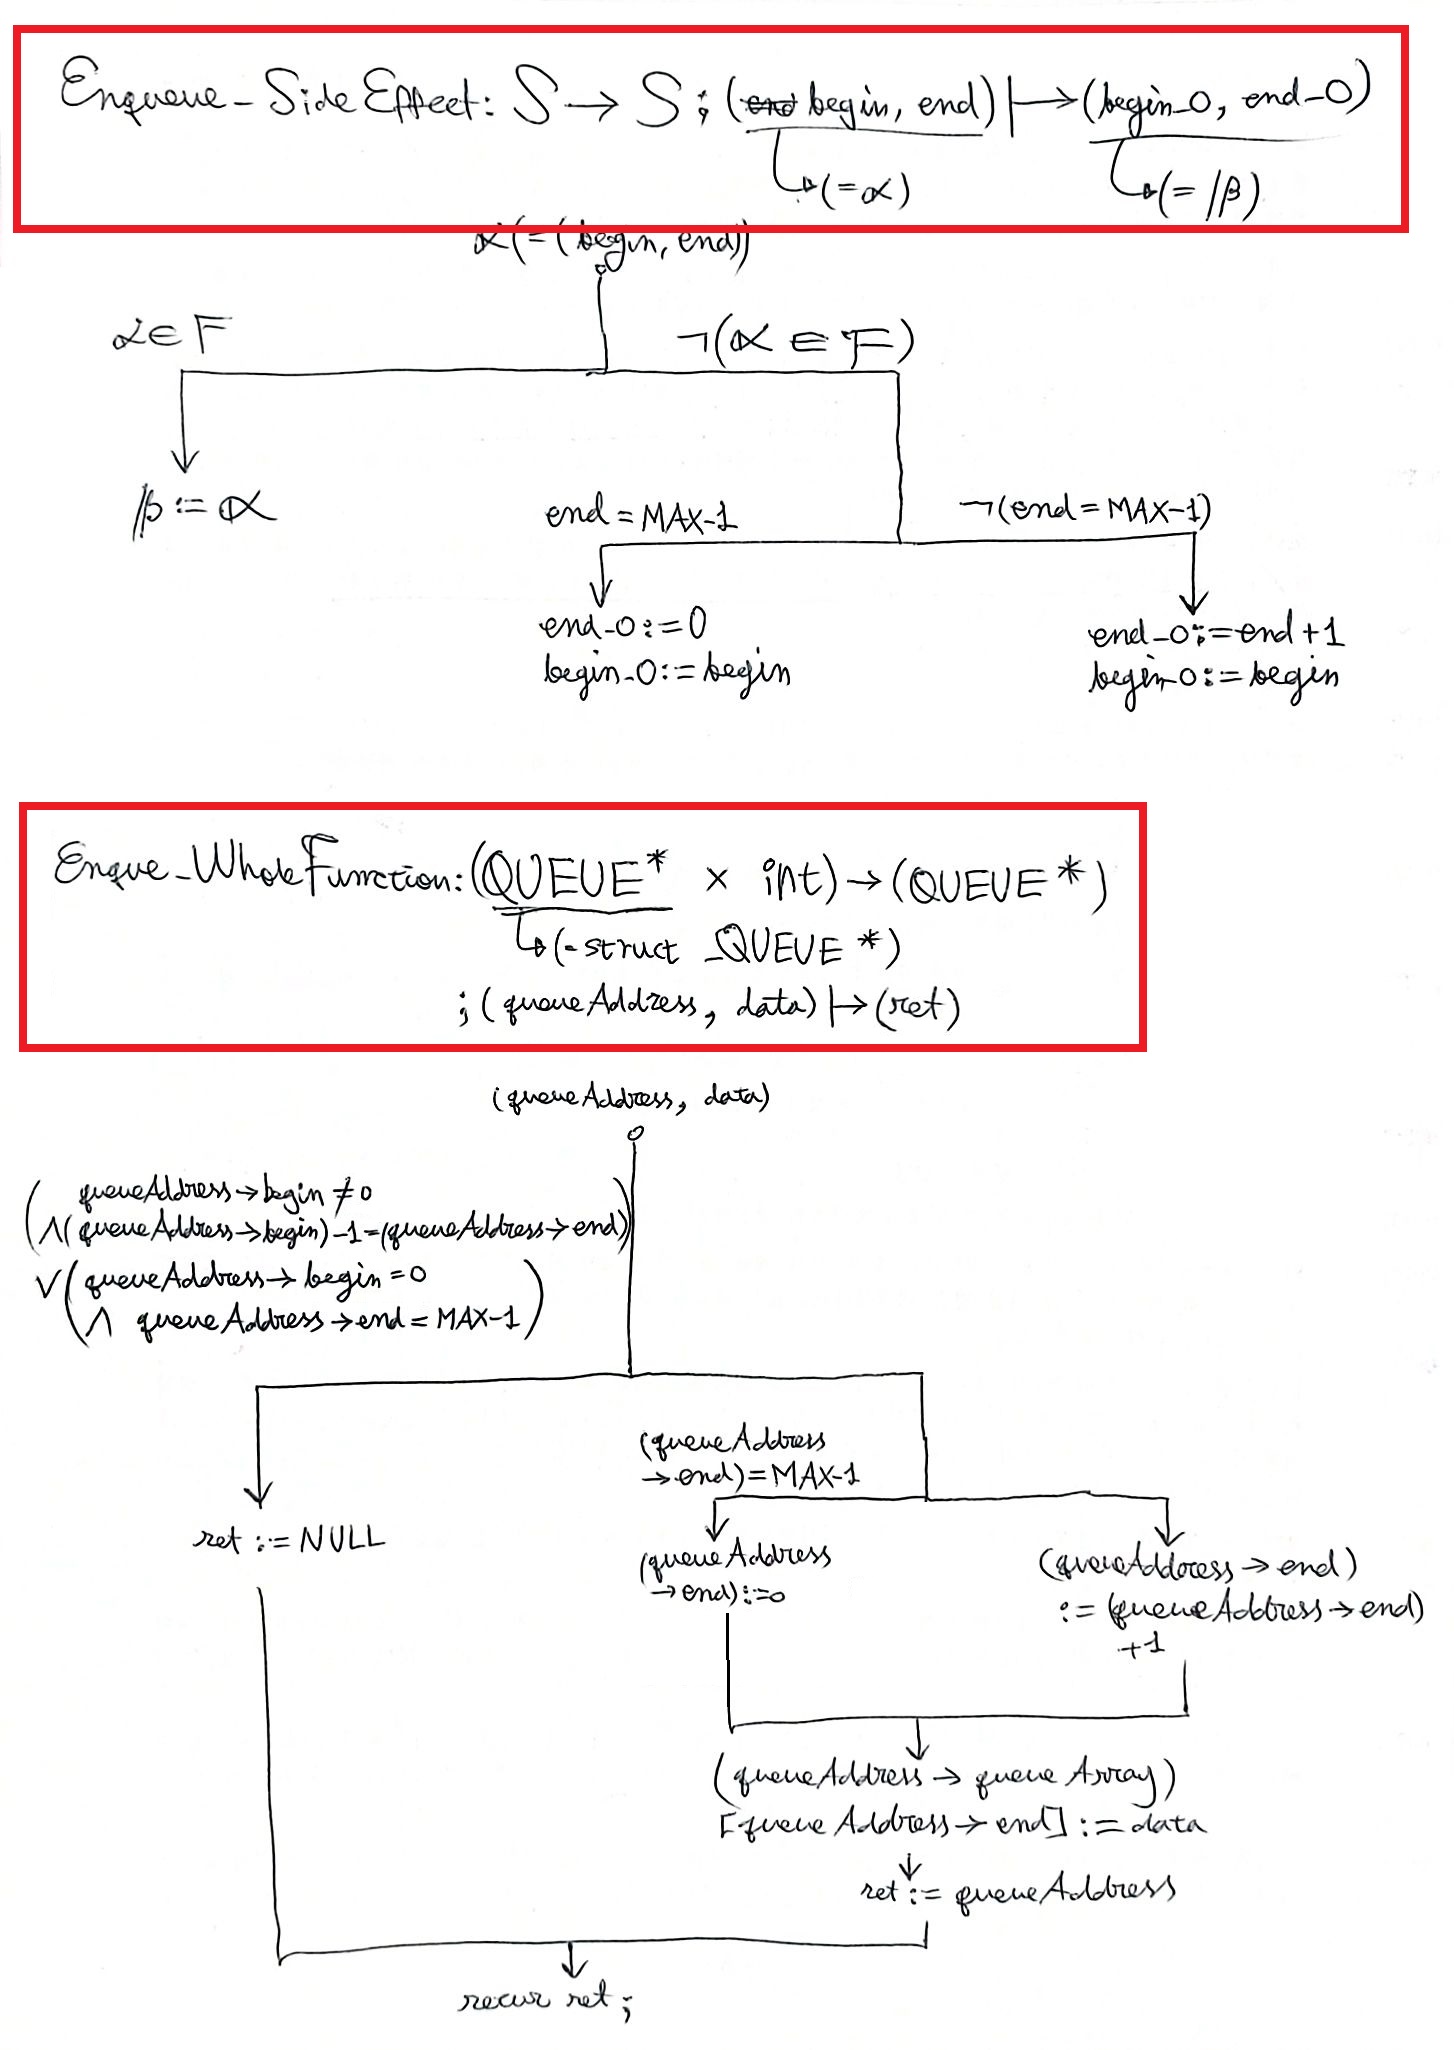 Enqueue_SideEffect: S → S ; (end begin, end) ↦ (begin_O, end_O)
↳(=α) ↳(=β)
α(=(begin, end))
α∈F ¬(α ∈ F)
β := α
end = MAX-1 ¬(end = MAX-1)
end_O := 0
begin_O := begin
end_O := end + 1
begin_O := begin
Enque_WholeFunction: (QUEUE* × int) → (QUEUE*)
↳(=struct _QUEUE *)
; (queueAddress, data) ↦ (ret)
(queueAddress, data)
( queueAddress → begin ≠ 0
∧(queueAddress → begin) -1 = (queueAddress → end) )
∨ ( queueAddress → begin = 0
∧ queueAddress → end = MAX-1 )
(queueAddress
→ end) = MAX-1
ret := NULL
(queueAddress
→ end) := 0
(queueAddress → end)
:= (queueAddress → end)
+1
(queueAddress → queueArray)
[queueAddress → end] := data
ret := queueAddress
recur ret ;